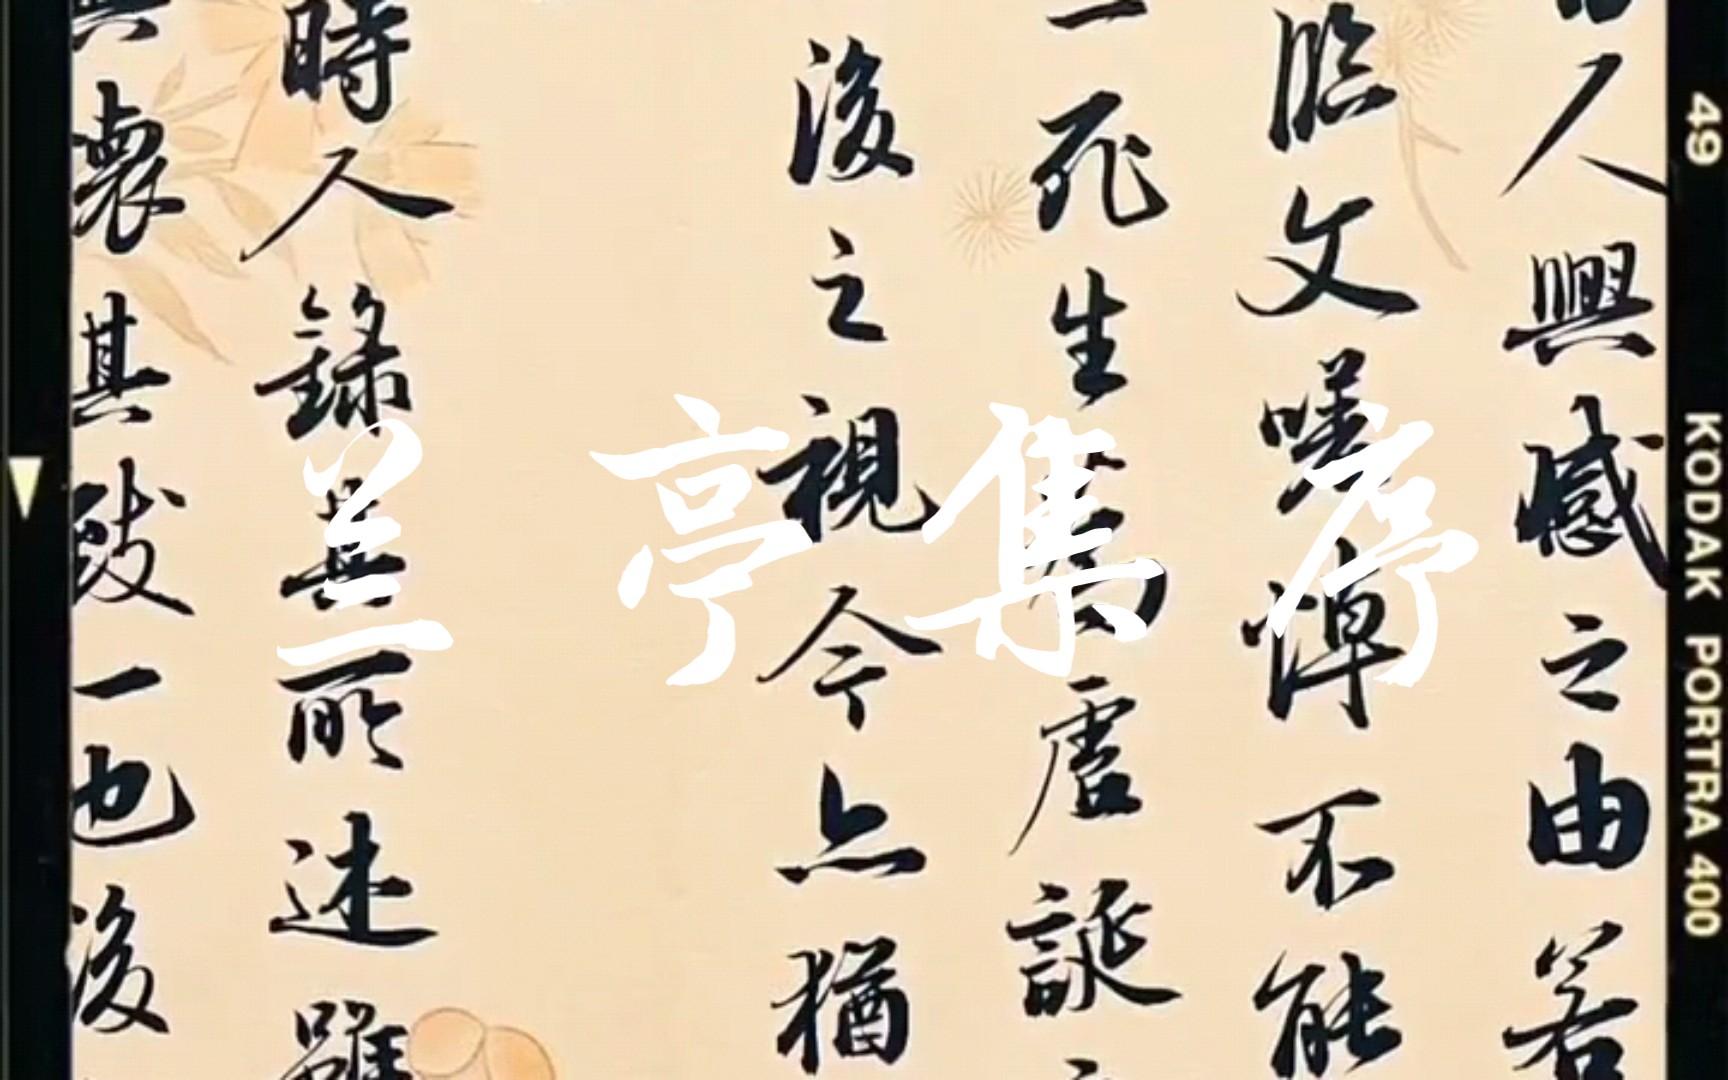 人興感之由若
臨文嗟悼不能
一死生為虛誕
後之視今亦猶
時人錄其所述雖
興懷其致一也後
兰亭集序
49 KODAK PORTRA 400